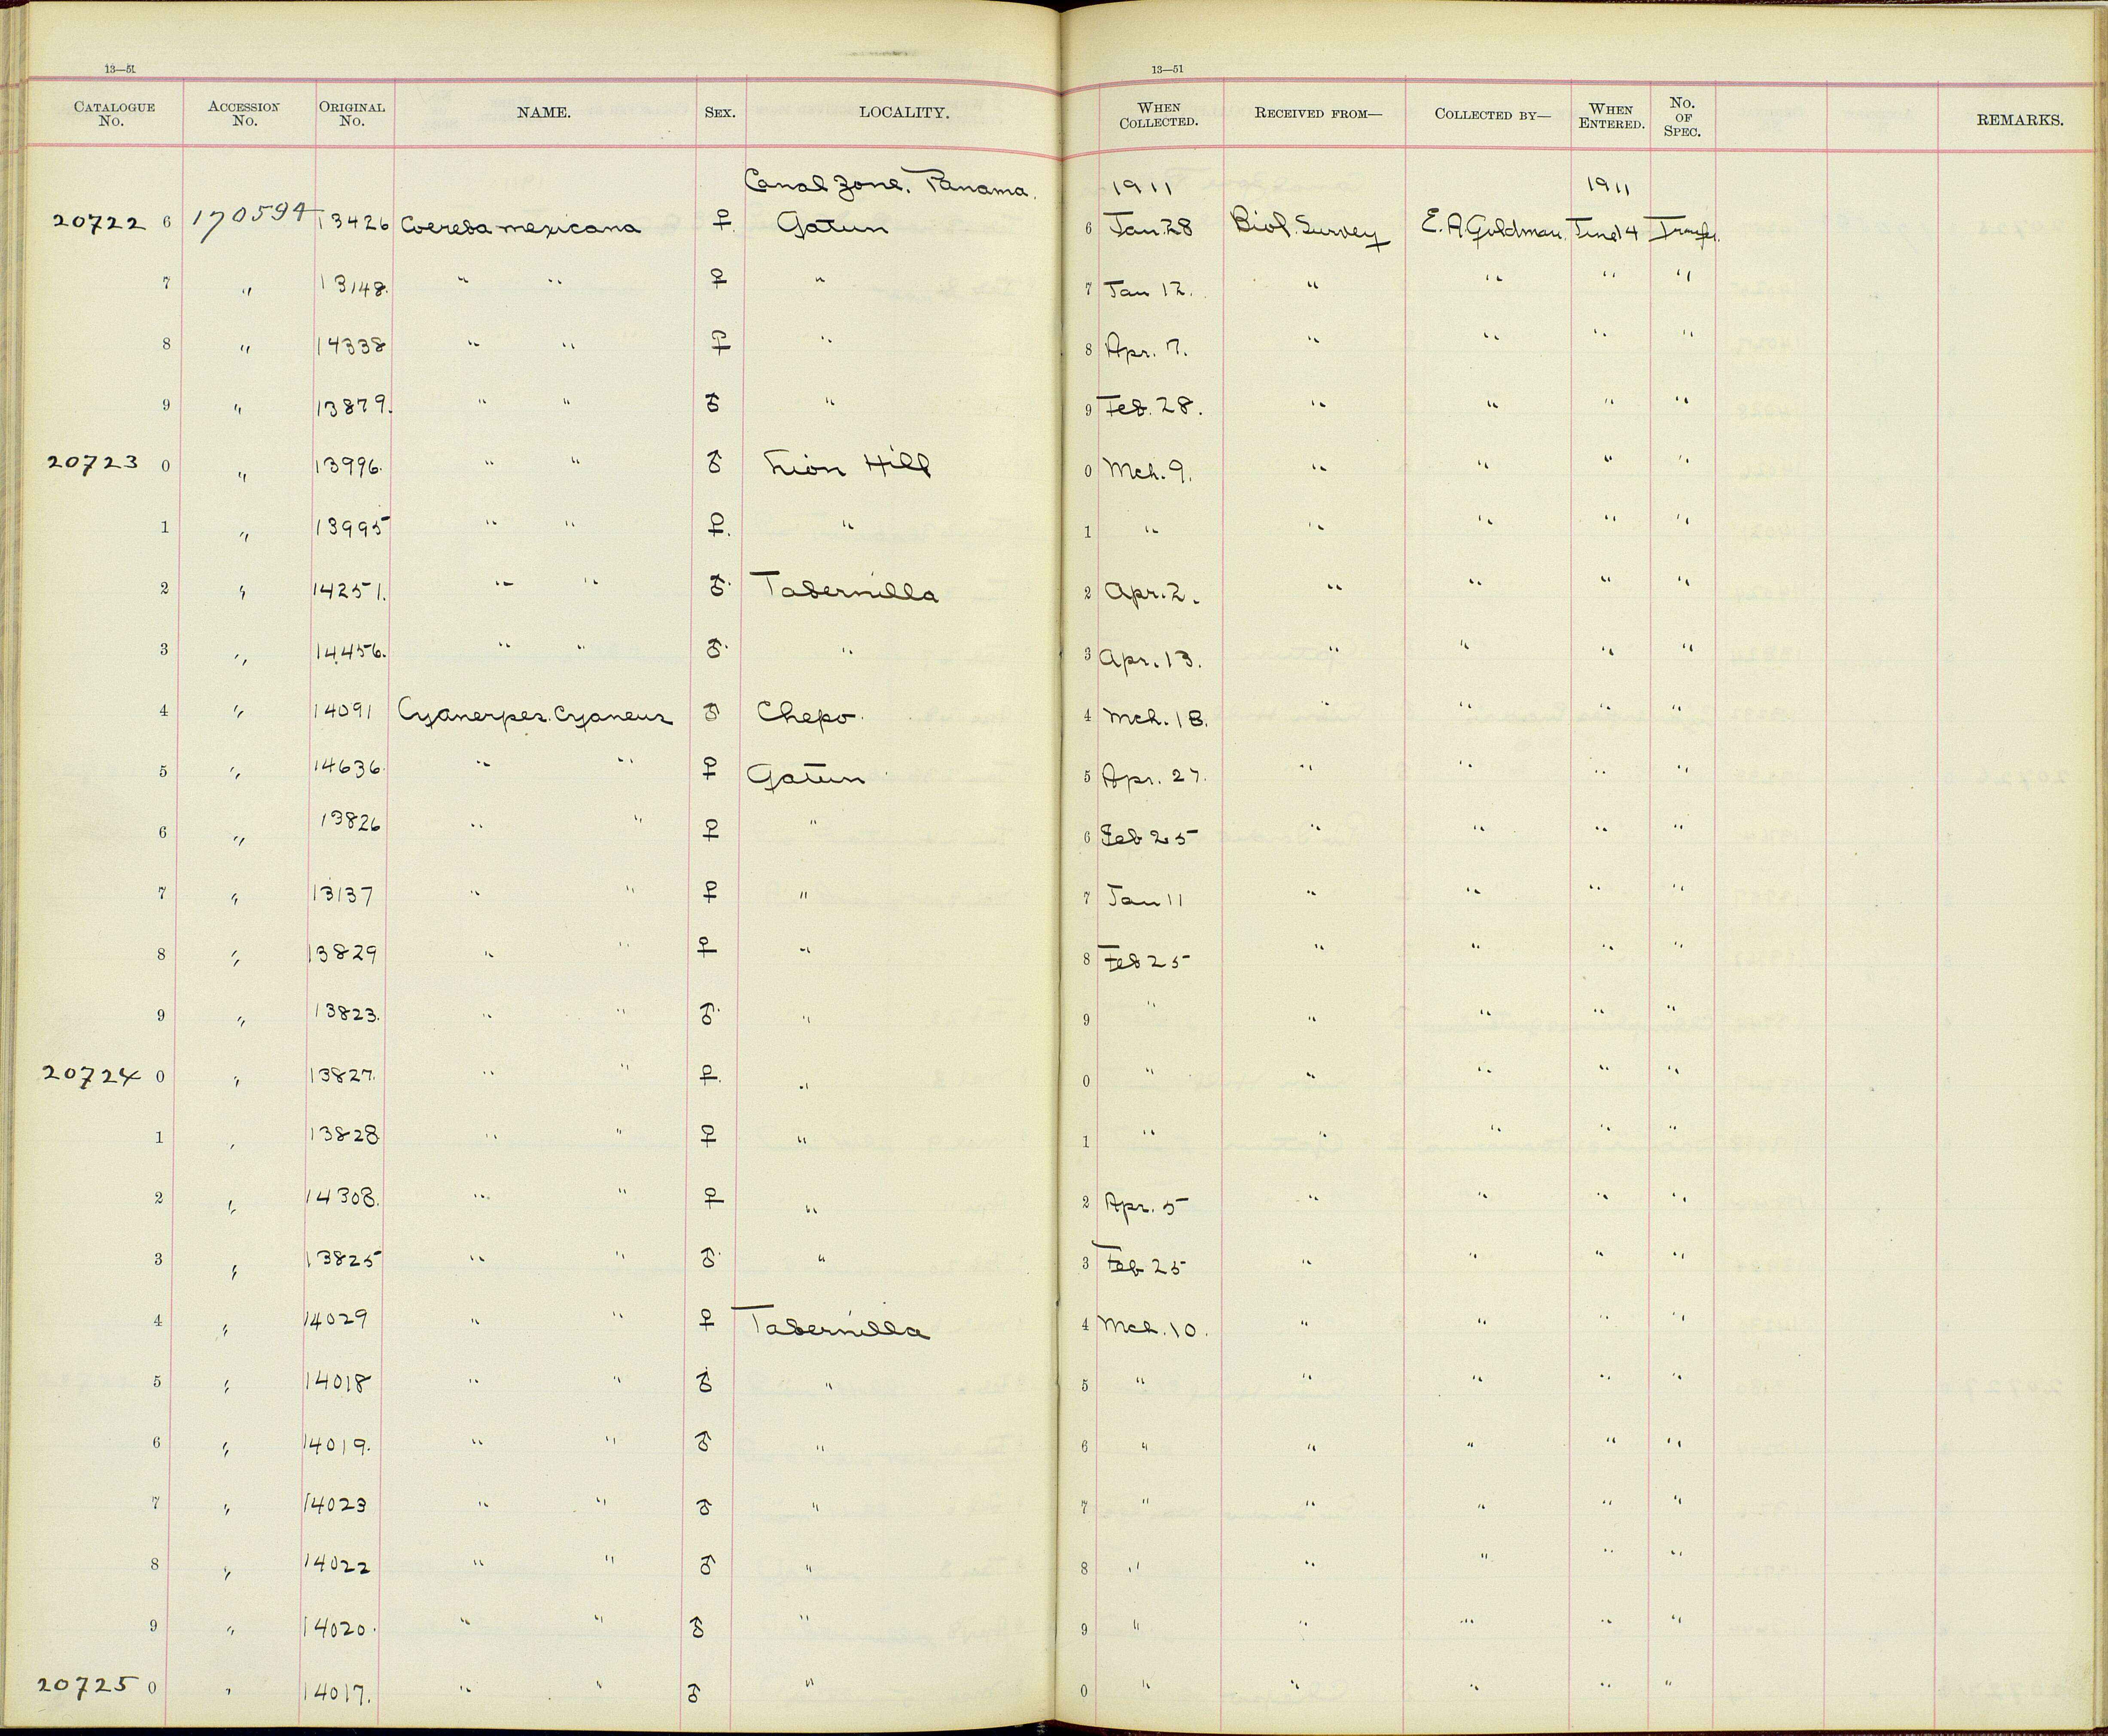 13—51 13—51
CATALOGUE No. ACCESSION No. ORIGINAL No. NAME. SEX. LOCALITY. WHEN COLLECTED. RECEIVED FROM— COLLECTED BY— WHEN ENTERED. No. OF SPEC. REMARKS.
Canal Zone, Panama. 1911 1911
20722 6 170594 13426 Coereba mexicana ♀. Gatun 6 Jan. 28 Biol. Survey E. A. Goldman. June 14 Transfer.
7 " 13148. " " ♀ " 7 Jan 12. " " " "
8 " 14338 " " ♀ " 8 Apr. 7. " " " "
9 " 13879. " " ♂ " 9 Feb. 28. " " " "
20723 0 " 13996. " " ♂ Lion Hill 0 Mch. 9. " " " "
1 " 13995 " " ♀. " 1 " " " " "
2 " 14251. " " ♂. Tabernilla 2 Apr. 2. " " " "
3 " 14456. " " ♂. " 3 Apr. 13. " " " "
4 " 14091 Cyanerpes. Cyaneus ♂ Chepo. 4 Mch. 18. " " " "
5 " 14636. " " ♀ Gatun 5 Apr. 27. " " " "
6 " 13826 " " ♀ " 6 Feb 25 " " " "
7 " 13137 " " ♀ " 7 Jan 11 " " " "
8 " 13829 " " ♀ " 8 Feb 25 " " " "
9 " 13823. " " ♂. " 9 " " " " "
20724 0 " 13827. " " ♀. " 0 " " " " "
1 " 13828 " " ♀ " 1 " " " " "
2 " 14308. " " ♀ " 2 Apr. 5 " " " "
3 " 13825 " " ♂. " 3 Feb 25 " " " "
4 " 14029 " " ♀ Tabernilla 4 Mch. 10. " " " "
5 " 14018 " " ♂ " " 5 " " " " "
6 " 14019. " " ♂ " 6 " " " " "
7 " 14023 " " ♂ " 7 " " " " "
8 " 14022 " " ♂ " 8 " " " " "
9 " 14020. " " ♂ " 9 " " " " "
20725 0 " 14017. " " ♂ " 0 " " " " "